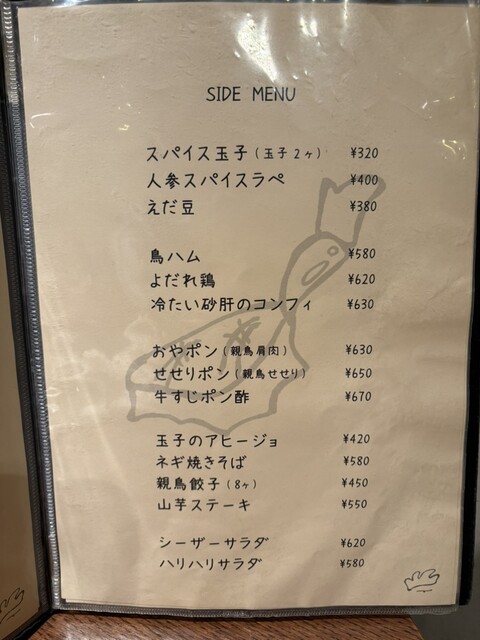 SIDE MENU
スパイス玉子（玉子2ヶ） ¥320
人参スパイスラペ ¥400
えだ豆 ¥380
鳥ハム ¥580
よだれ鶏 ¥620
冷たい砂肝のコンフィ ¥630
おやポン（親鳥肩肉） ¥630
せせりポン（親鳥せせり） ¥650
牛すじポン酢 ¥670
玉子のアヒージョ ¥420
ネギ焼きそば ¥580
親鳥餃子（8ヶ） ¥450
山芋ステーキ ¥550
シーザーサラダ ¥620
ハリハリサラダ ¥580